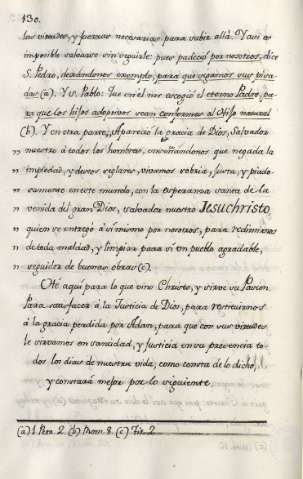 130.
las virtudes, y fuerzas necesarias para subir allà. Y aun es
imposible salvarse sin seguirle: pues padeció por nosotros, dice
S. Pedro, dexàndonos exemplo, para que sigamos sus pisa-
das (a). Y S. Pablo: Que en el nos escogiò el eterno Padre, pa-
ra que los hijos adoptivos sean conformes al Hijo natural
(b). Y en otra parte: Apareciò la gracia de Dios, Salvador
nuestro à todos los hombres, enseñandonos que negada la
" impiedad, y deseos seglares, vivamos sobria, justa, y piado
" samente en este mundo, con la esperanza santa de la
" venida del gran Dios, salvador nuestro Jesuchristo,
" quien se entregò à sí mismo por nosotros, para redimirnos
" de toda maldad, y limpiar para sí un pueblo agradable,
" seguidor de buenas obras (c).
Ote aquí para lo que vino Christo, y sirve su Pasion.
Para satisfacer à la Justicia de Dios, para restituirnos
à la gracia perdida por Adàn, para que con sus virtudes
le sirvamos en santidad, y justicia en su presencia to
dos los dias de nuestra vida, como consta de lo dicho,
y constarà mejor por lo siguiente.
(a) 1 Petr. 2. (b) Rom. 8. (c) Tit. 2.